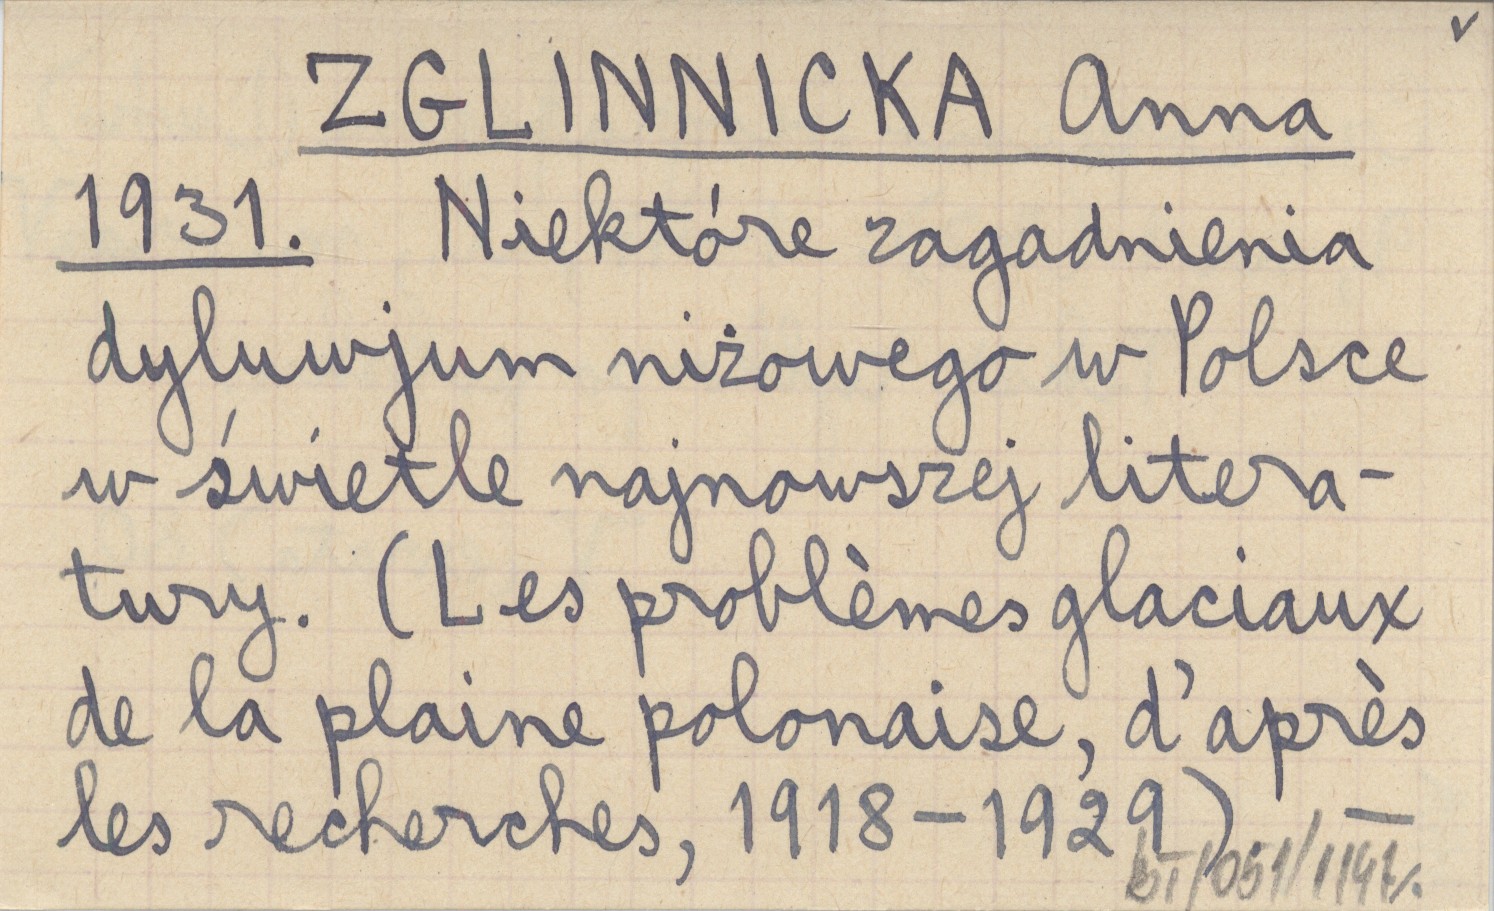 ZGLINNICKA Anna
1931. Niektóre zagadnienia
dyluwjum niżowego w Polsce
w świetle najnowszej litera-
tury. (Les problèmes glaciaux
de la plaine polonaise, d'après
les recherches, 1918-1929) —